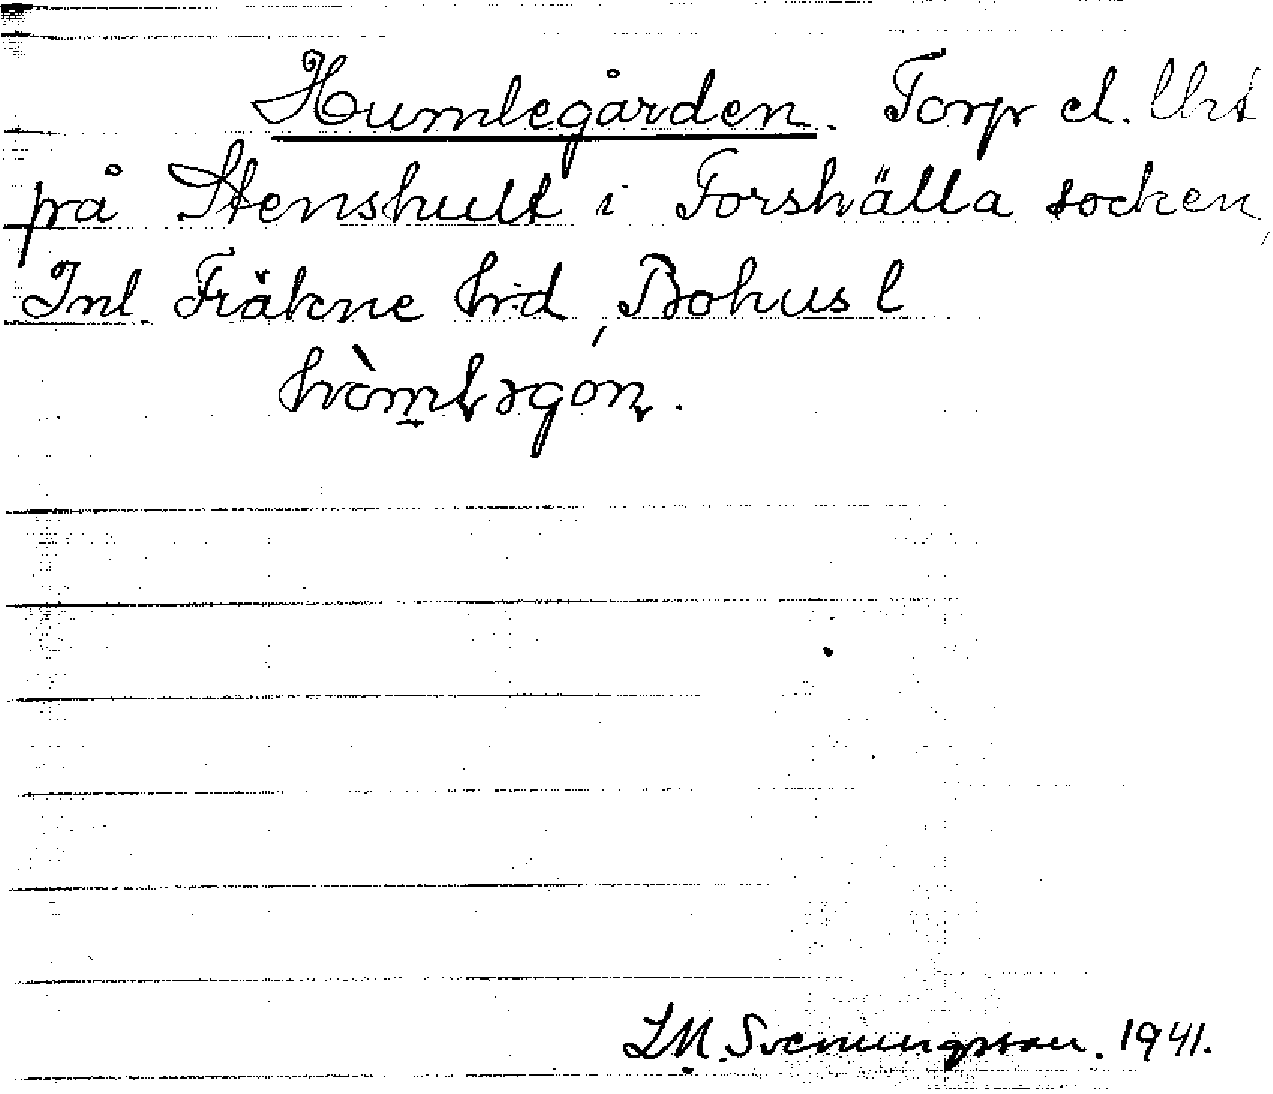 Humlegården. Torp el. lht
på Stenshult i Forshälla socken,
Inl. Fräkne hd, Bohusl
L M. Svenungsson. 1941.